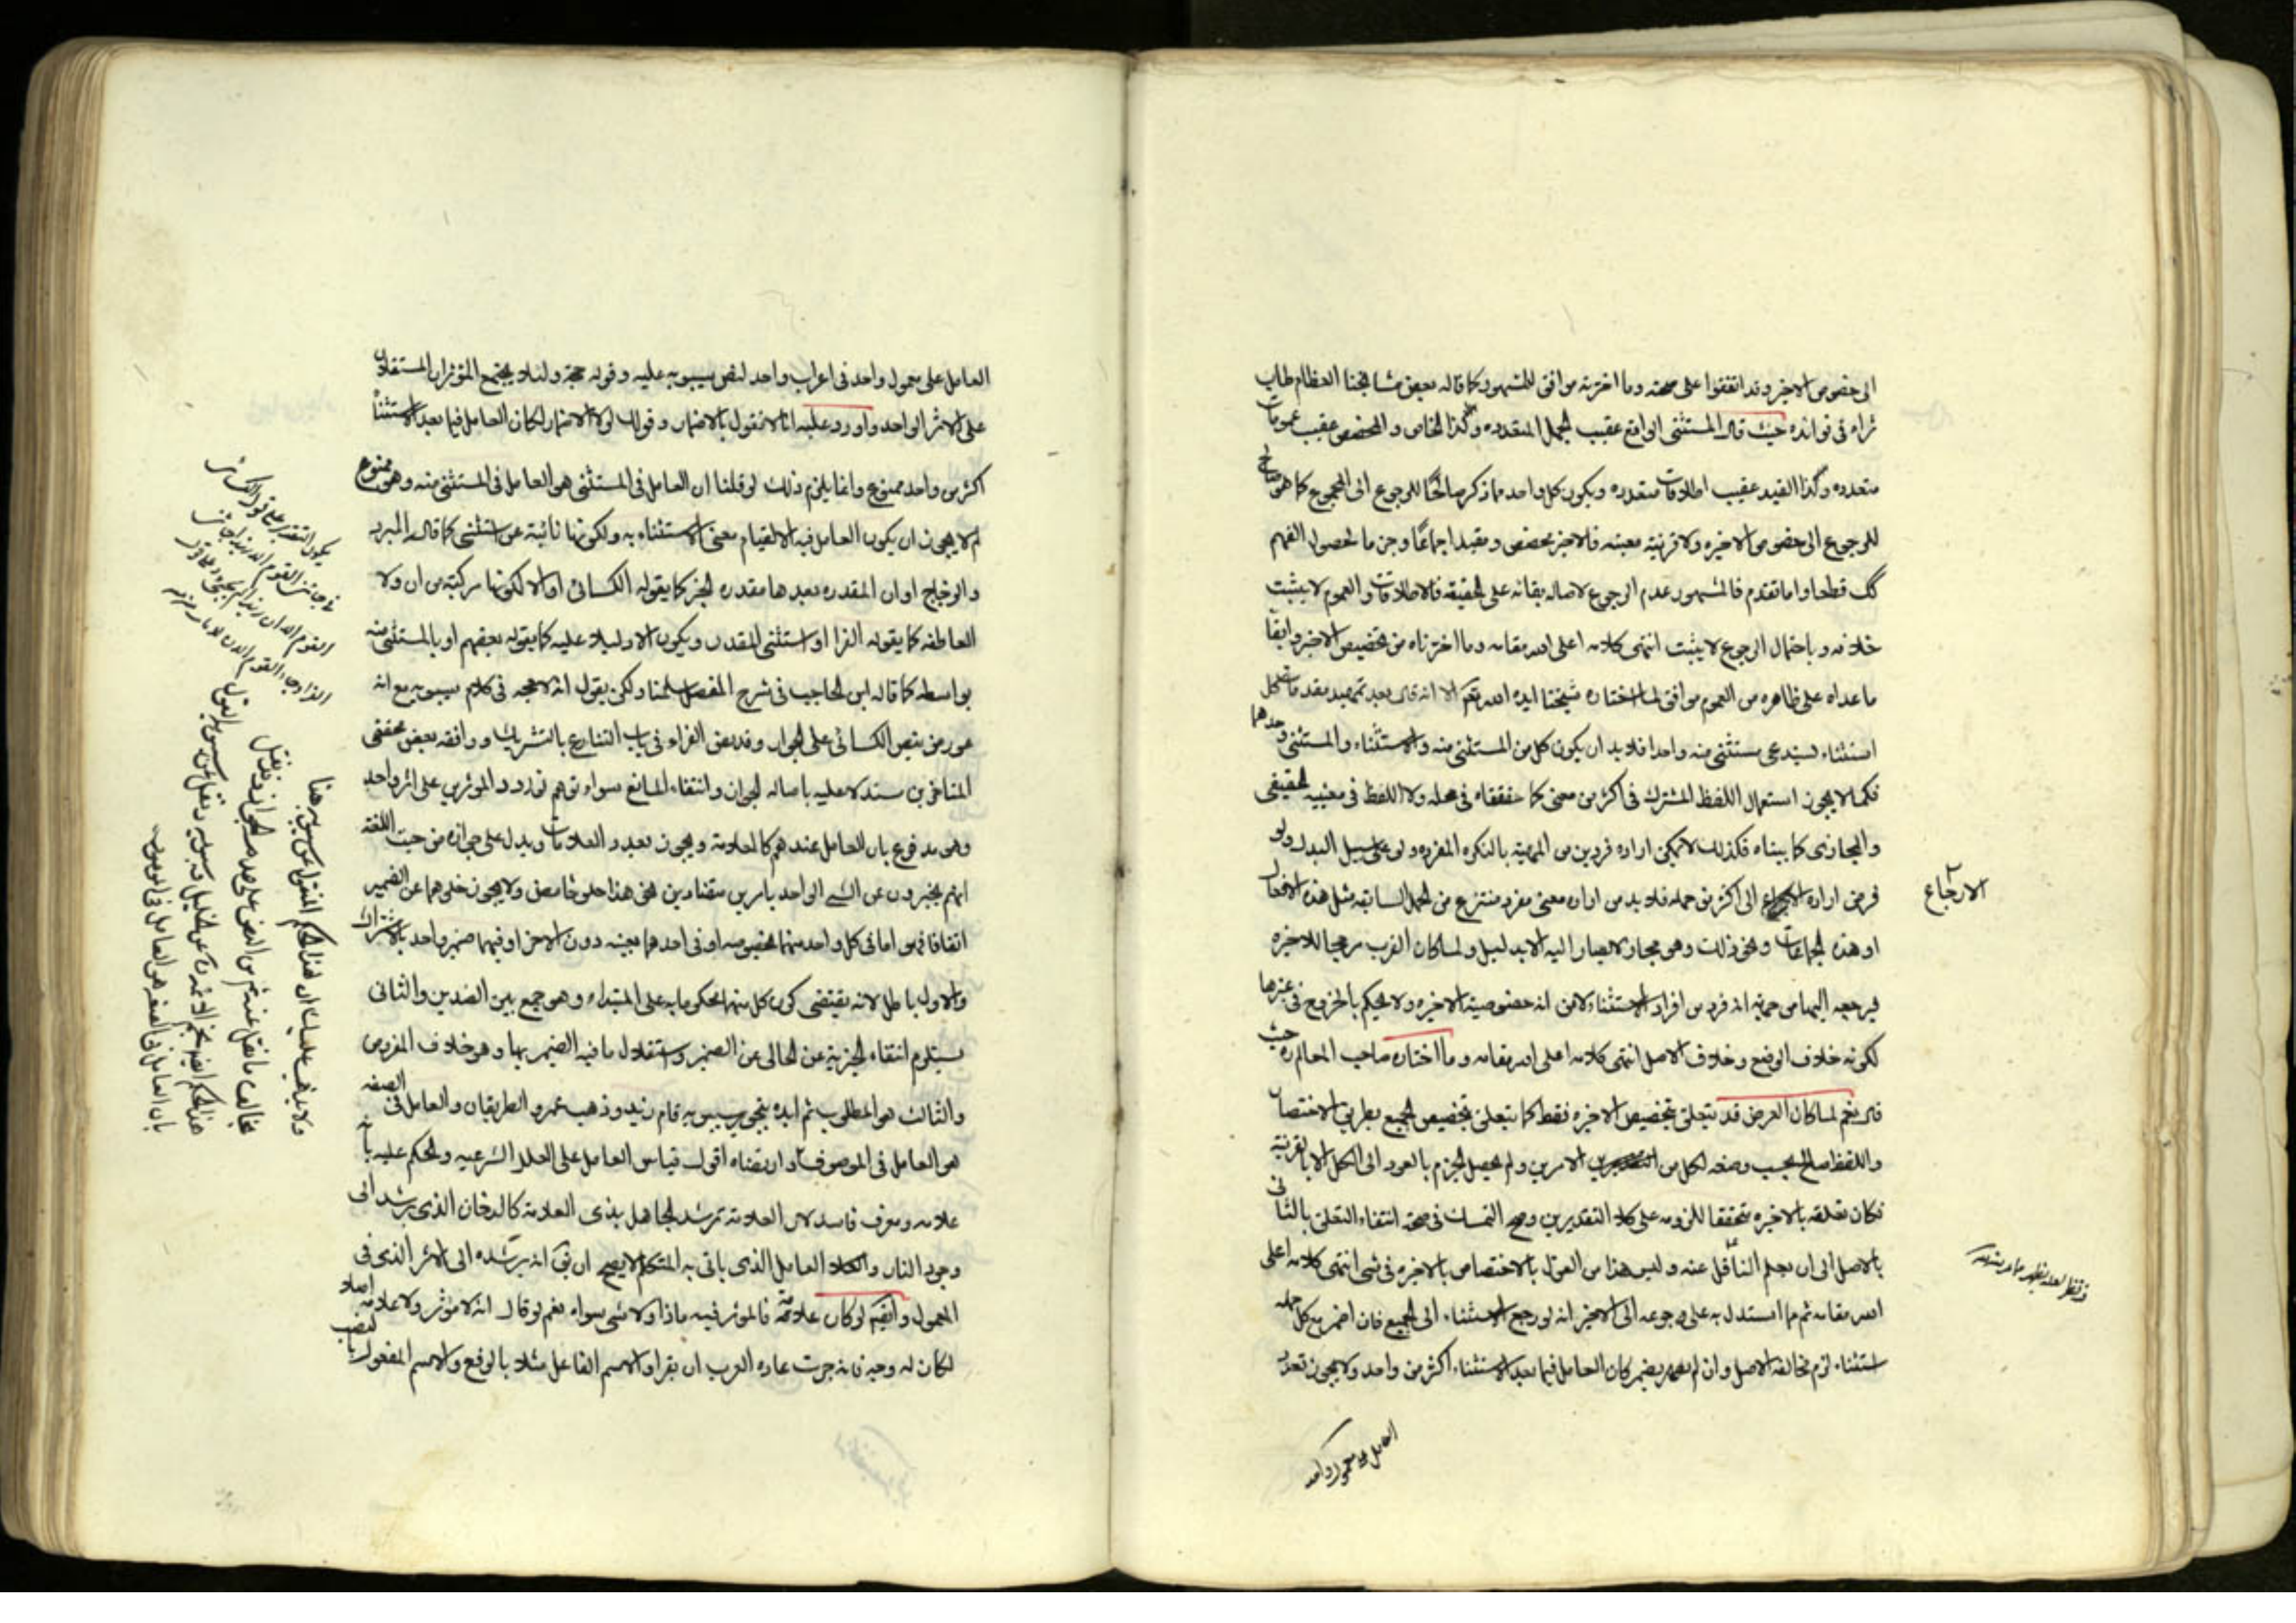 الى خصوص الاخير وقد اتفقوا على صحته وما اخترته موافق للمشهور كما قاله بعض مشايخنا العظام طاب
ثراه في فوائده حيث قال المستثنى الواقع عقيب الجمل المتعدده وكذا الخاص والمخصص عقيب عمومات
متعدده وكذا القيد عقيب اطلاقات متعدده ويكون كل واحد مما ذكر صالحًا للرجوع الى المجموع كما هو صالح
للرجوع الى خصوص الاخيره ولا قرنية معينه فالاخير مخصص ومقيد اجماعًا وجزما لحصول الفهم
كك قطعا واما تقدم فالمشهور عدم الرجوع لاصاله بقائه على الحقيقه فالاطلاقات والعموم لا يثبت
خلافه وباحتمال الرجوع لا يثبت انتهى كلامه اعلى الله مقامه وما اخترناه من تخصيص الاخير وابقا
ما عداه على ظاهره من العموم موافق لما اختاره شيخنا ايده الله تعم الا انه قال بعد تمهيد مقدمات كل
استثناء يستدعى مستثنى منه واحدا فلا بد ان يكون كل من المستثنى منه والاستثناء والمستثنى وحدهما
فكما لا يجوز استعمال اللفظ المشترك فى اكثر من معنى كما حققناه فى محله ولا اللفظ فى معنييه الحقيقى
والمجازى كما بيناه فكذلك لا يمكن اراده فردين من المهيه بالنكره المفرده ولو على سبيل البدل ولو
فرض اراده الى اكثر من جمله فلا بد من اراده معنى مفرد منتزع من الجمل السابقه مثل هذه الافعال
الارجاع
او هذه الجماعات ونحو ذلك وهو مجاز لا يصار اليه الا بدليل ولما كان القرب مرجحا للاخيره
فيرجعه اليها من جهة انه فرد من افراد الاستثناء لا من انه خصوصية الاخيره ولا يحكم بالخروج فى غيرها
لكونه خلاف الوضع وخلاف الاصل انتهى كلامه اعلى الله مقامه وما اختاره صاحب المعالم ره حيث
قال نعم لما كان الغرض قد يتعلق بتخصيص الاخيره فقط كما يتعلق بتخصيص الجميع بطريق الاختصاص
واللفظ صالح بحسب وضعه لكل من الامرين ولم يحصل الجزم بالعود الى الكل الا بالقرنية
فكان تعلقه بالاخيره متحققا للزومه على كلا التقديرين وصح التمسك فى صحة انتفاء التعلق بالثانى
بالاصل الى ان يعلم الناقل عنه وليس هذا من القول بالاختصاص بالاخيره فى شى انتهى كلامه اعلى
الله مقامه ثم مما استدل به على رجوعه الى الاخير انه لو رجع الاستثناء الى الجميع فان اضمر مع كل جمله
استثناء لزم مخالفه الاصل وان لم يضمر كان العامل فيما بعد الاستثناء اكثر من واحد ولا يجوز تعدد
العامل على معمول واحد
العامل على معمول واحد فى اعراب واحد لنص سيبويه عليه وقوله حجة ولئلا يجتمع المؤثران المستقلان
على الاثر الواحد واورد عليه انا لا نقول بالاضمار وقولك لولا الاضمار لكان العامل فيما بعد الاستثناء
اكثر من واحد ممنوع وانما يلزم ذلك لو قلنا ان العامل فى المستثنى هو العامل فى المستثنى منه وهو ممنوع
لم لا يجوز ان يكون العامل فيه الا لقيام معنى الاستثناء به ولكونها نائبة عن استثنى كما قاله المبرد
والزجاج او ان المقدره بعدها مقدره الخبر كما يقوله الكسائى او الا لكونها مركبة من ان ولا
العاطفه كما يقوله الفرا او استثنى المقدر ويكون الا دليلا عليه كما يقوله بعضهم او بالمستثنى منه
بواسطه كما قاله ابن الحاجب فى شرح المفصل سلمنا ولكن نقول انه لا حجه فى كلام سيبويه مع انه
معارض بنص الكسائى على الجواز وقد نص الفراء فى باب التنازع بالتشريك ووافقه بعض محققى
المتاخرين مستدلا عليه باصاله الجواز وانتفاء المانع سواء توهم توارد المؤثرين على اثر واحد
وهو مدفوع بان العامل عندهم كالعلامة ويجوز تعدد العلامات ويدل على جوازه من حيث اللغة
انهم يخبرون عن الشى الواحد بامرين متضادين نحو هذا حلو حامض ولا يجوز خلوهما عن الضمير
اتفاقا فهو اما فى كل واحد منهما بخصوصه او فى احدهما بعينه دون الاخر او فيهما ضمير واحد بالاشتراك
والاول باطل لانه يقتضى كون كل منهما محكوما به على المبتداء وهو جمع بين الضدين والثانى
يستلزم انتفاء الخبرية عن الخالى عن الضمير واستقلال ما فيه الضمير بها وهو خلاف المفروض
والثالث هو المطلوب ثم ايده بتجويز سيبويه قام زيد وذهب عمرو الظريفان والعامل فى الصفه
هو العامل فى الموصوف وارتضاه اقول قياس العامل على العلل الشرعيه والحكم عليه بأنه
علامه ومعرف فاسد لان العلامة ترشد الجاهل بذى العلامة كالدخان الذى يرشد الى
وجود النار والعامل الذى ياتى به المتكلم لا يصح ان يق انه يرشده الى الاثر الذى فى
المعمول وايضا لو كان علامة فالمؤثر فيه ماذا ولا شى سواه نعم لو قال انه لا مؤثر ولا علامه اصلا
لكان له وجه فانه جرت عادة العرب ان يقراوا الاسم الفاعل مثلا بالرفع والاسم المفعول بالنصب
ولا يذهب عليك ان هذا الحكم المنقول عن سيبويه هنا
مخالف ما نقل عنه من النص على الجواز فقد نقل
هذا الحكم نجم الائمه عن الخليل وسيبويه ونقل عن سيبويه القول
بان العامل فى الصفه هو العامل فى الموصوف